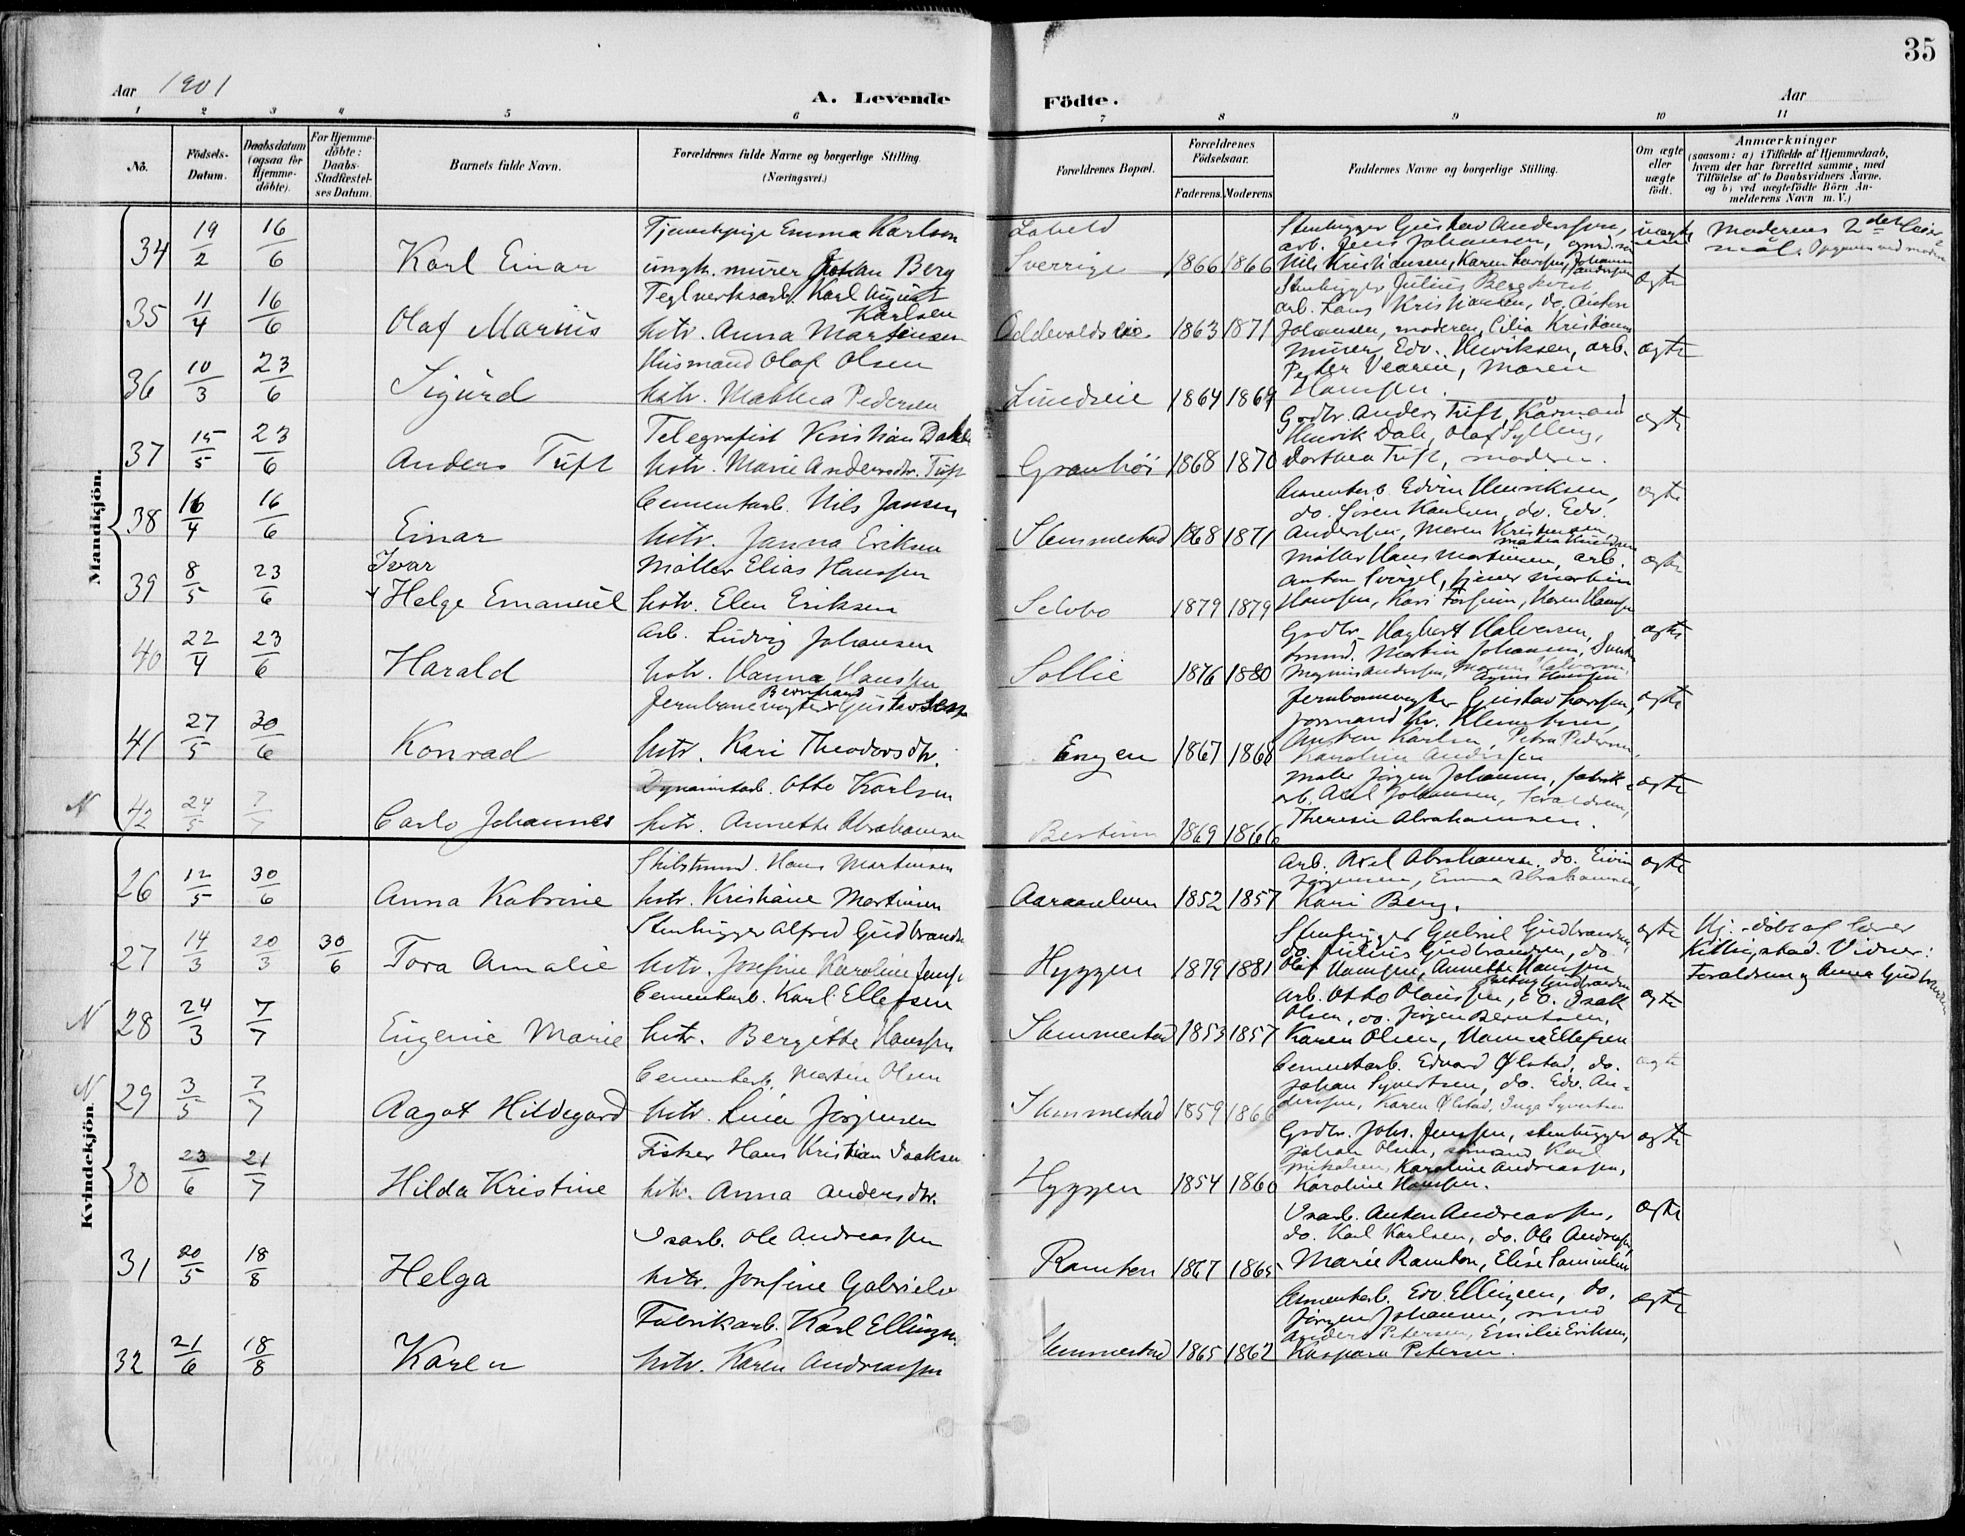 35
Aar 1901
A. Levende Födte.
Aar
1 2 3 4 5 6 7 8 9 10 11
No.
Födsels-Datum.
Daabsdatum (ogsaa for Hjemme-döbte).
For Hjemme-döbte: Daabs-Stadfæstel-ses Datum.
Barnets fulde Navn.
Forældrenes fulde Navne og borgerlige Stilling. (Næringsvei.)
Forældrenes Bopæl.
Forældrenes Födselsaar.
Faderens. Moderens.
Faddernes Navne og borgerlige Stilling.
Om ægte eller uægte födt.
Anmærkninger
(saasom: a) i Tilfælde af Hjemmedaab, hvem der har forrettet samme, med Tilföielse af to Daabsvidners Navne, og b) ved uægtefödte Börn An-melderens Navn m. V.)
Mandkjön.
34 19/2 16/6 Karl Einar
Tjenestepige Emma Karlsen
ungk. murer Johan Berg
Sverrige 1866 1866
Stenhugger Gustav Anderssen,
arb. Jens Johansen,
Nils Kristiansen, Karen Larssen, Johannes Anderssen
uægte
Moderens 2det Leier-
mål. Opgaven ved moderen
35 11/4 16/6 Olaf Marius
Teglverksarb. Karl August Karlsen
hstr. Anna Martinsen
1863 1871
Stenhugger Julius Bergkvist
arb. Hans Kristiansen, do. Anton
Johansen, moderen, Cilia Kristiansen
ægte
36 10/3 23/6 Sigurd
Husmand Olaf Olsen
hstr. Mathea Pedersen
Lundseie 1864 1869
murer Edv. Henriksen, arb.
Peder Vearen, Maren
Hanssen.
ægte
37 15/5 23/6 Anders Tuft
Telegrafist Kristian Dahl
hstr. Marie Andersdtr. Tuft
Granhöi 1868 1870
Grdbr. Anders Tuft, Kårmand
Henrik Dale, Olaf Sylling,
Dorthea Tuft, moderen.
ægte
38 16/4 16/6 Einar
Cementarb. Nils Jansen
hstr. Janna Eriksen
Slemmestad 1868 1871
Cementarb. Edvin Henriksen,
do. Sören Karlsen, do. Edv.
Anderssen, Maren Kristensen,
ægte
39 8/5 23/6 Ivar
Helge Emanuel
Möller Elias Hanssen
hstr. Elen Eriksen
Selvbo 1879 1879
Möller Hans Martinsen, arb.
Anton Sörgel, tjener Martin
Hanssen, Kari Forsum, Karen Hanssen
ægte
40 22/4 23/6 Harald
Arb. Ludvig Johansen
hstr. Hanna Hanssen
Sollie 1876 1880
Grdbr. Hagbart Halvorsen,
Smed. Martin Johansen,
Magnus Anderssen, Maren Halvorsen,
Agnes Hanssen
ægte
41 27/5 30/6 Konrad
Bernhard
Jernbanevogter Gustavsen
hstr. Kari Theodorsdtr.
Engen 1867 1868
Jernbanevogter Gustav Larssen,
formand Kr. Klemetsen,
Anton Karlsen, Petra Pedersen,
Karoline Anderssen
ægte
N 42 24/5 7/7 Carlo Johannes
Dynamitarb. Otto Karlsen
hstr. Annette Abrahamsen
1869 1866
Maler Jörgen Johansen, fabrik-
arb. Axel Johansen, Foraldrene,
Theresie Abrahamsen.
ægte
Kvindekjön.
26 12/5 30/6 Anna Katrine
Skibstmmd. Hans Martinsen
hstr. Kristiane Martinsen
1852 1857
Arb. Axel Abrahamsen, do. Eivin
Jörgensen, Emma Abrahamsen,
Kari Berg.
ægte
27 14/3 20/3 30/6 Tora Amalie
Stenhugger Alfred Gudbrandsen
hstr. Josefine Karoline Jenssen
Hyggen 1879 1881
Stenhugger Gabriel Gudbrandsen,
do. Julius Gudbrandsen, do.
Olaf Hanssen, Annette Hanssen
ægte
Hj.-döbt af lærer
Killingstad. Vidner:
Foraldrene og Anna Gudbrandsen
N 28 24/3 7/7 Eugenie Marie
Cementarb. Karl Ellefsen
hstr. Bergitte Hanssen
Slemmestad 1853 1857
Arb. Otto Olaussen, do. Isak
Olsen, do. Jörgen Berntsen,
Karen Olsen, Hanna Ellefsen
ægte
N 29 3/5 7/7 Aagot Hildegard
Cementarb. Martin Olsen
hstr. Lina Jörgensen
Slemmestad 1859 1866
Cementarb. Edvard Ølstad, do.
Johan Syvertsen, do. Edv. An-
derssen, Karen Ølstad, Inga Syvertsen
ægte
30 23/6 21/7 Hilda Kristine
Fisker Hans Kristian Isaksen
hstr. Anna Andersdtr.
Hyggen 1854 1860
Grdbr. Johs. Jenssen, stenhugger
Johan Olsen, sömand Karl
Mikalsen, Karoline Andreassen,
Karoline Hanssen.
ægte
31 20/5 18/8 Helga
Isarb. Ole Andreassen
hstr. Josfine Gabrielsen
Ramton 1867 1865
Isarb. Anton Andreassen,
do. Karl Karlsen, do. Ole Andreassen,
Marie Ramton, Elise Samuelsen
ægte
32 21/6 18/8 Karen
Fabrikarb. Karl Ellingsen
hstr. Karen Andreassen
Slemmestad 1865 1862
Cementarb. Edv. Ellingsen, do.
Jörgen Johansen, smed
Anders Petersen, Emilie Eriksen,
Kaspara Petersen.
ægte